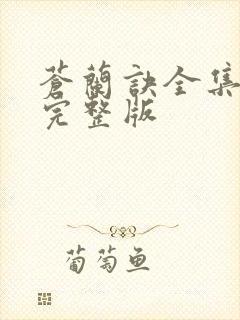 蒼蘭訣全集
完整版
葡萄鱼